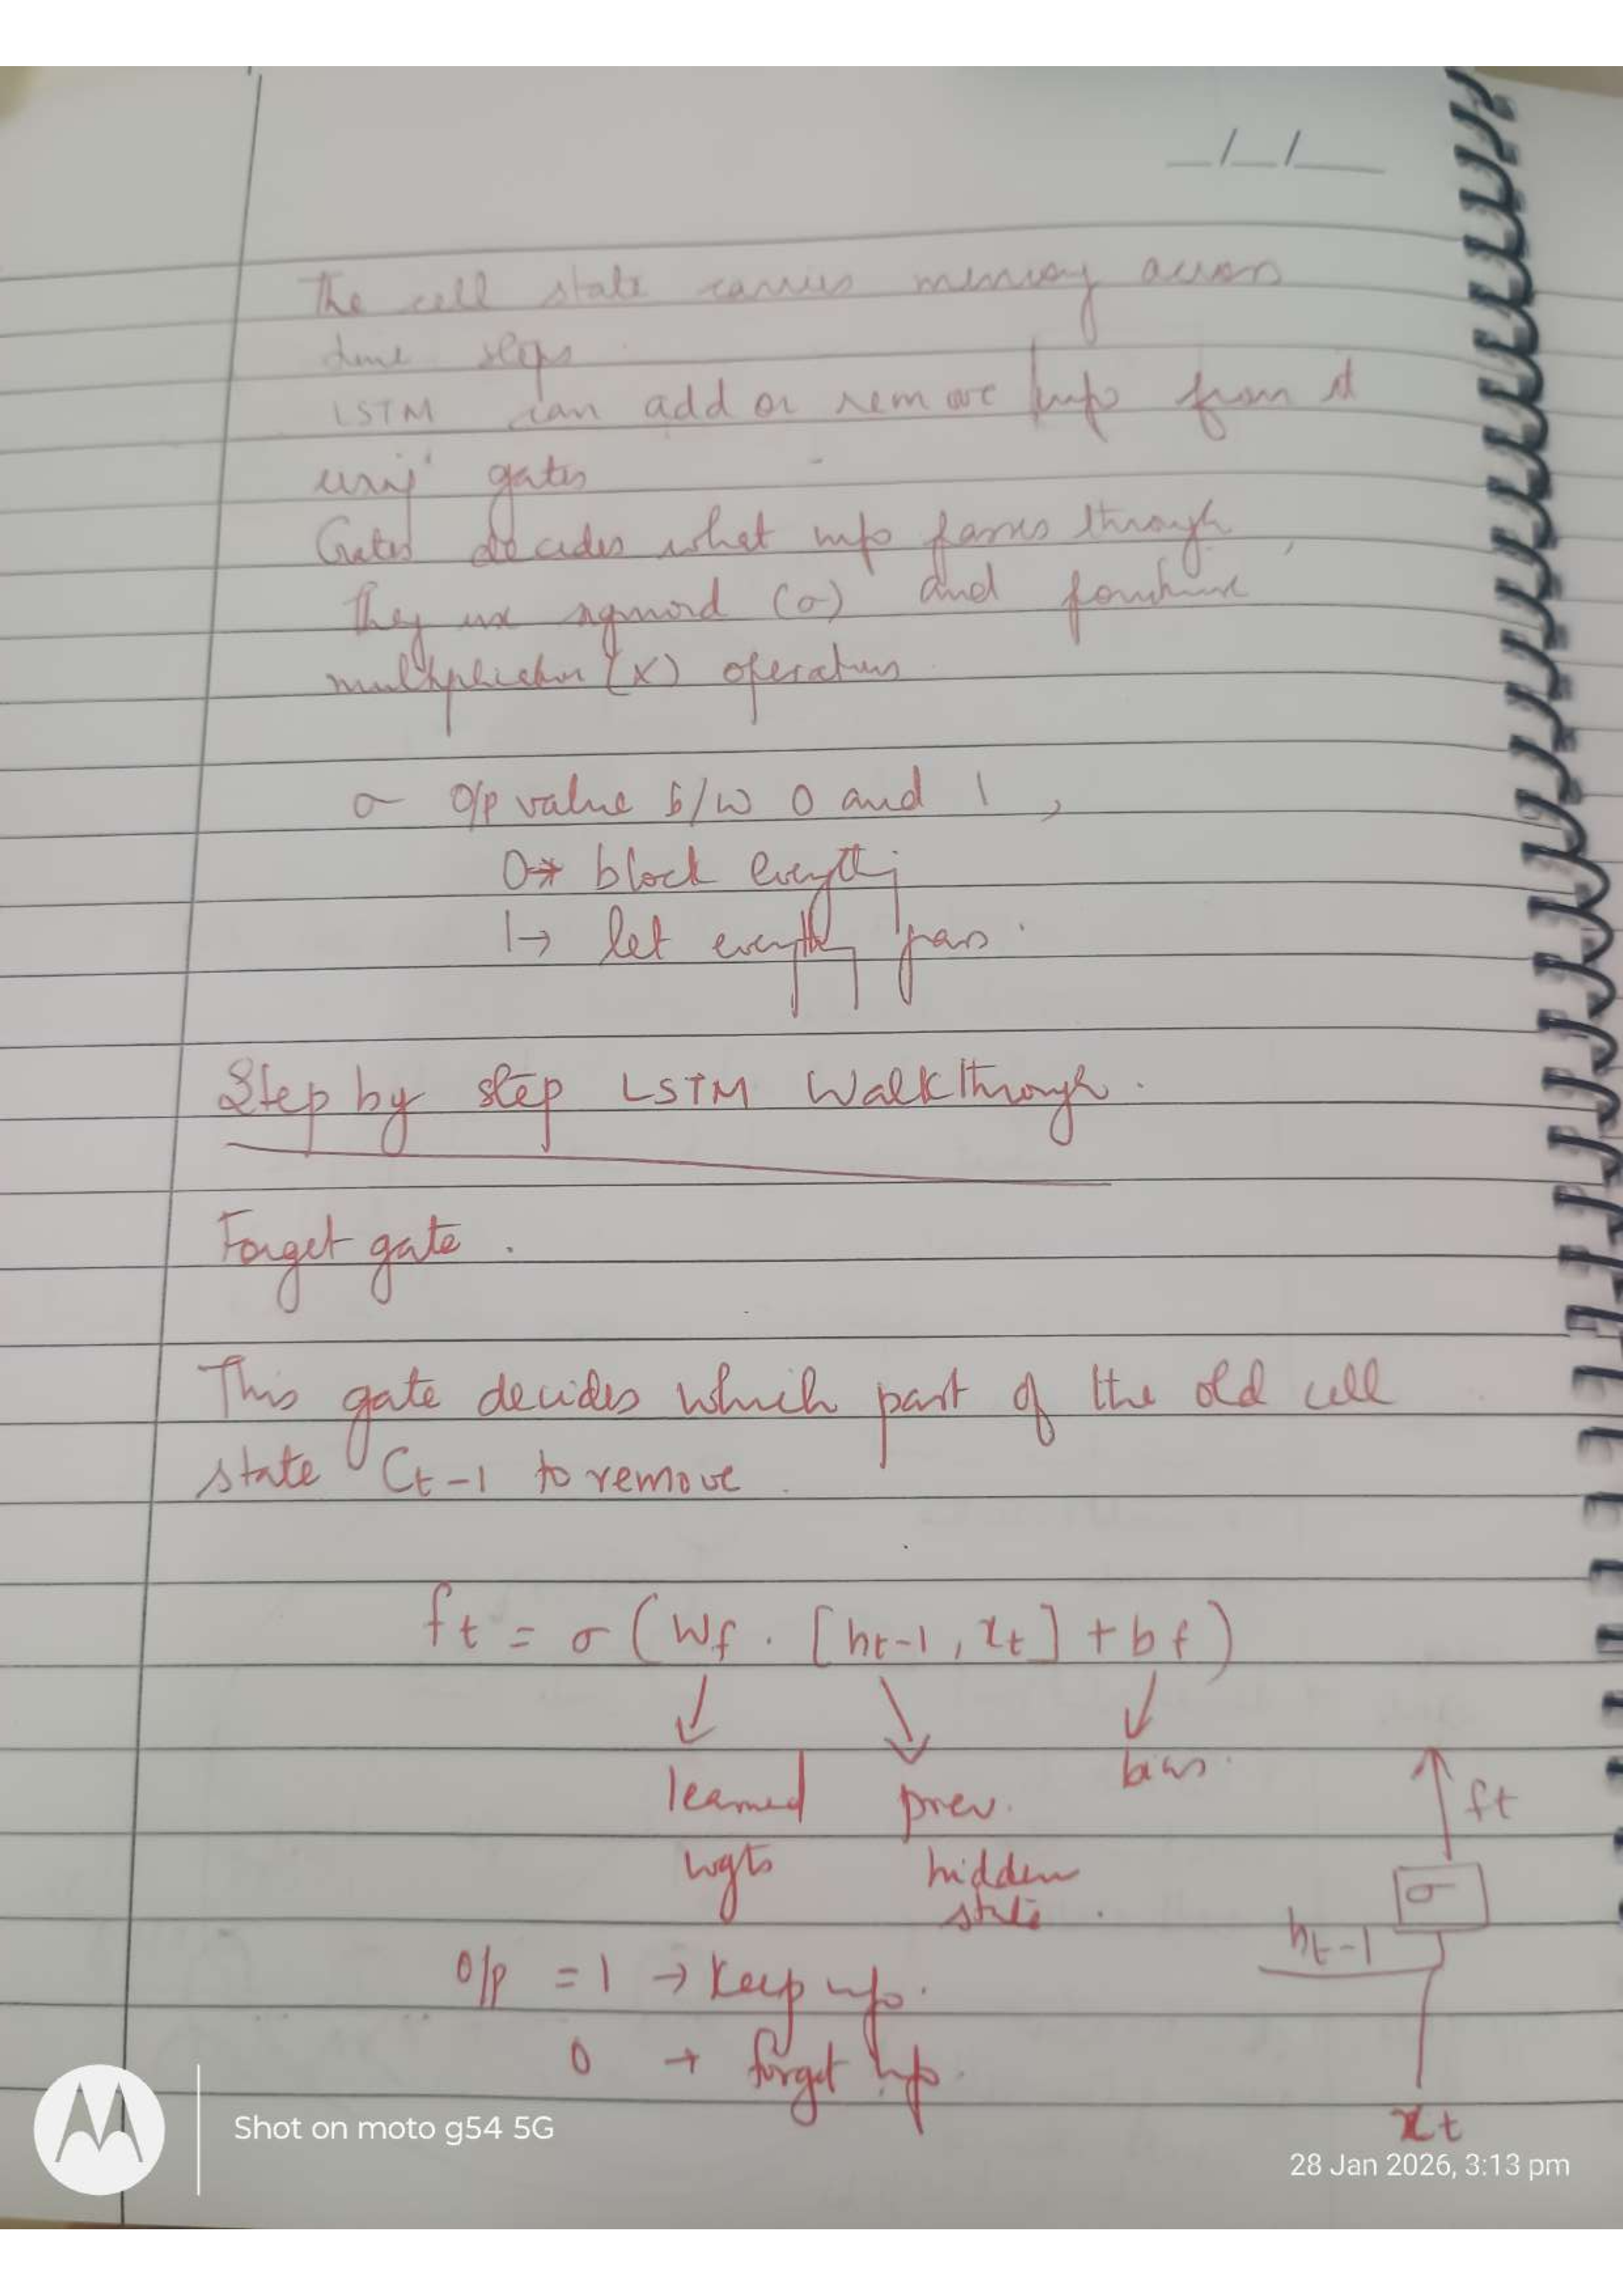 _/_/_
The cell state carries memory across
time steps.
LSTM can add or remove info from it
using gates
Gates decides what info passes through,
They use sigmoid (σ) and pointwise
multiplication (x) operations.
σ o/p value b/w 0 and 1,
0→ block everything
1→ let everything pass.
Step by step LSTM Walkthrough.
Forget gate.
This gate decides which part of the old cell
state Ct-1 to remove.
ft = σ (Wf . [ht-1, xt] + bf)
learned prev. bias.
wgts hidden
state.
o/p = 1 → Keep info.
0 → forget info.
ft
σ
ht-1
xt
Shot on moto g54 5G
28 Jan 2026, 3:13 pm